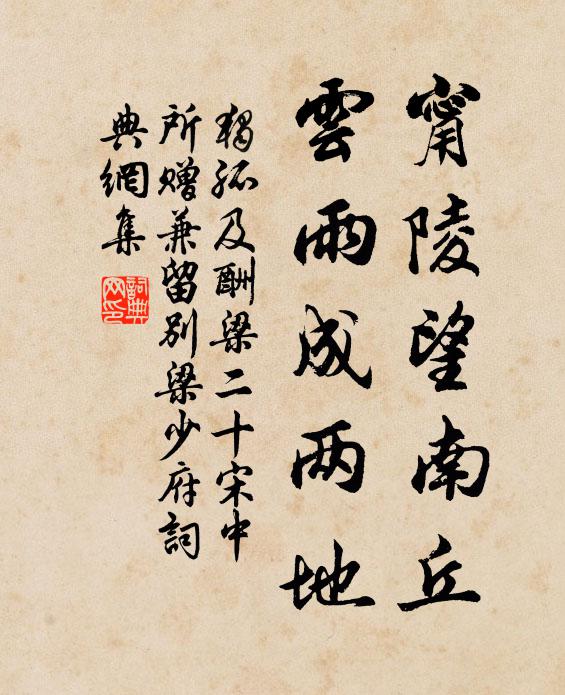 甯陵望南丘
雲雨成两地
獨孤及酬梁二十宋中
所贈兼留別梁少府詞
典網集
詞典
网印